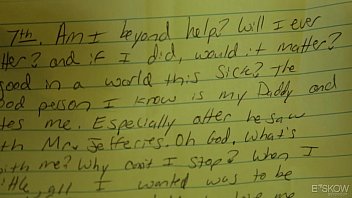 7th. Am I beyond help? Will I ever
ter? and if I did, would it matter?
good in a world this sick? The
od person I know is my Daddy and
tes me. Especially after he saw
th Mr. Jefferies. Oh God, what's
with me? Why can't I stop? When I
ttle, all I wanted was to be
me